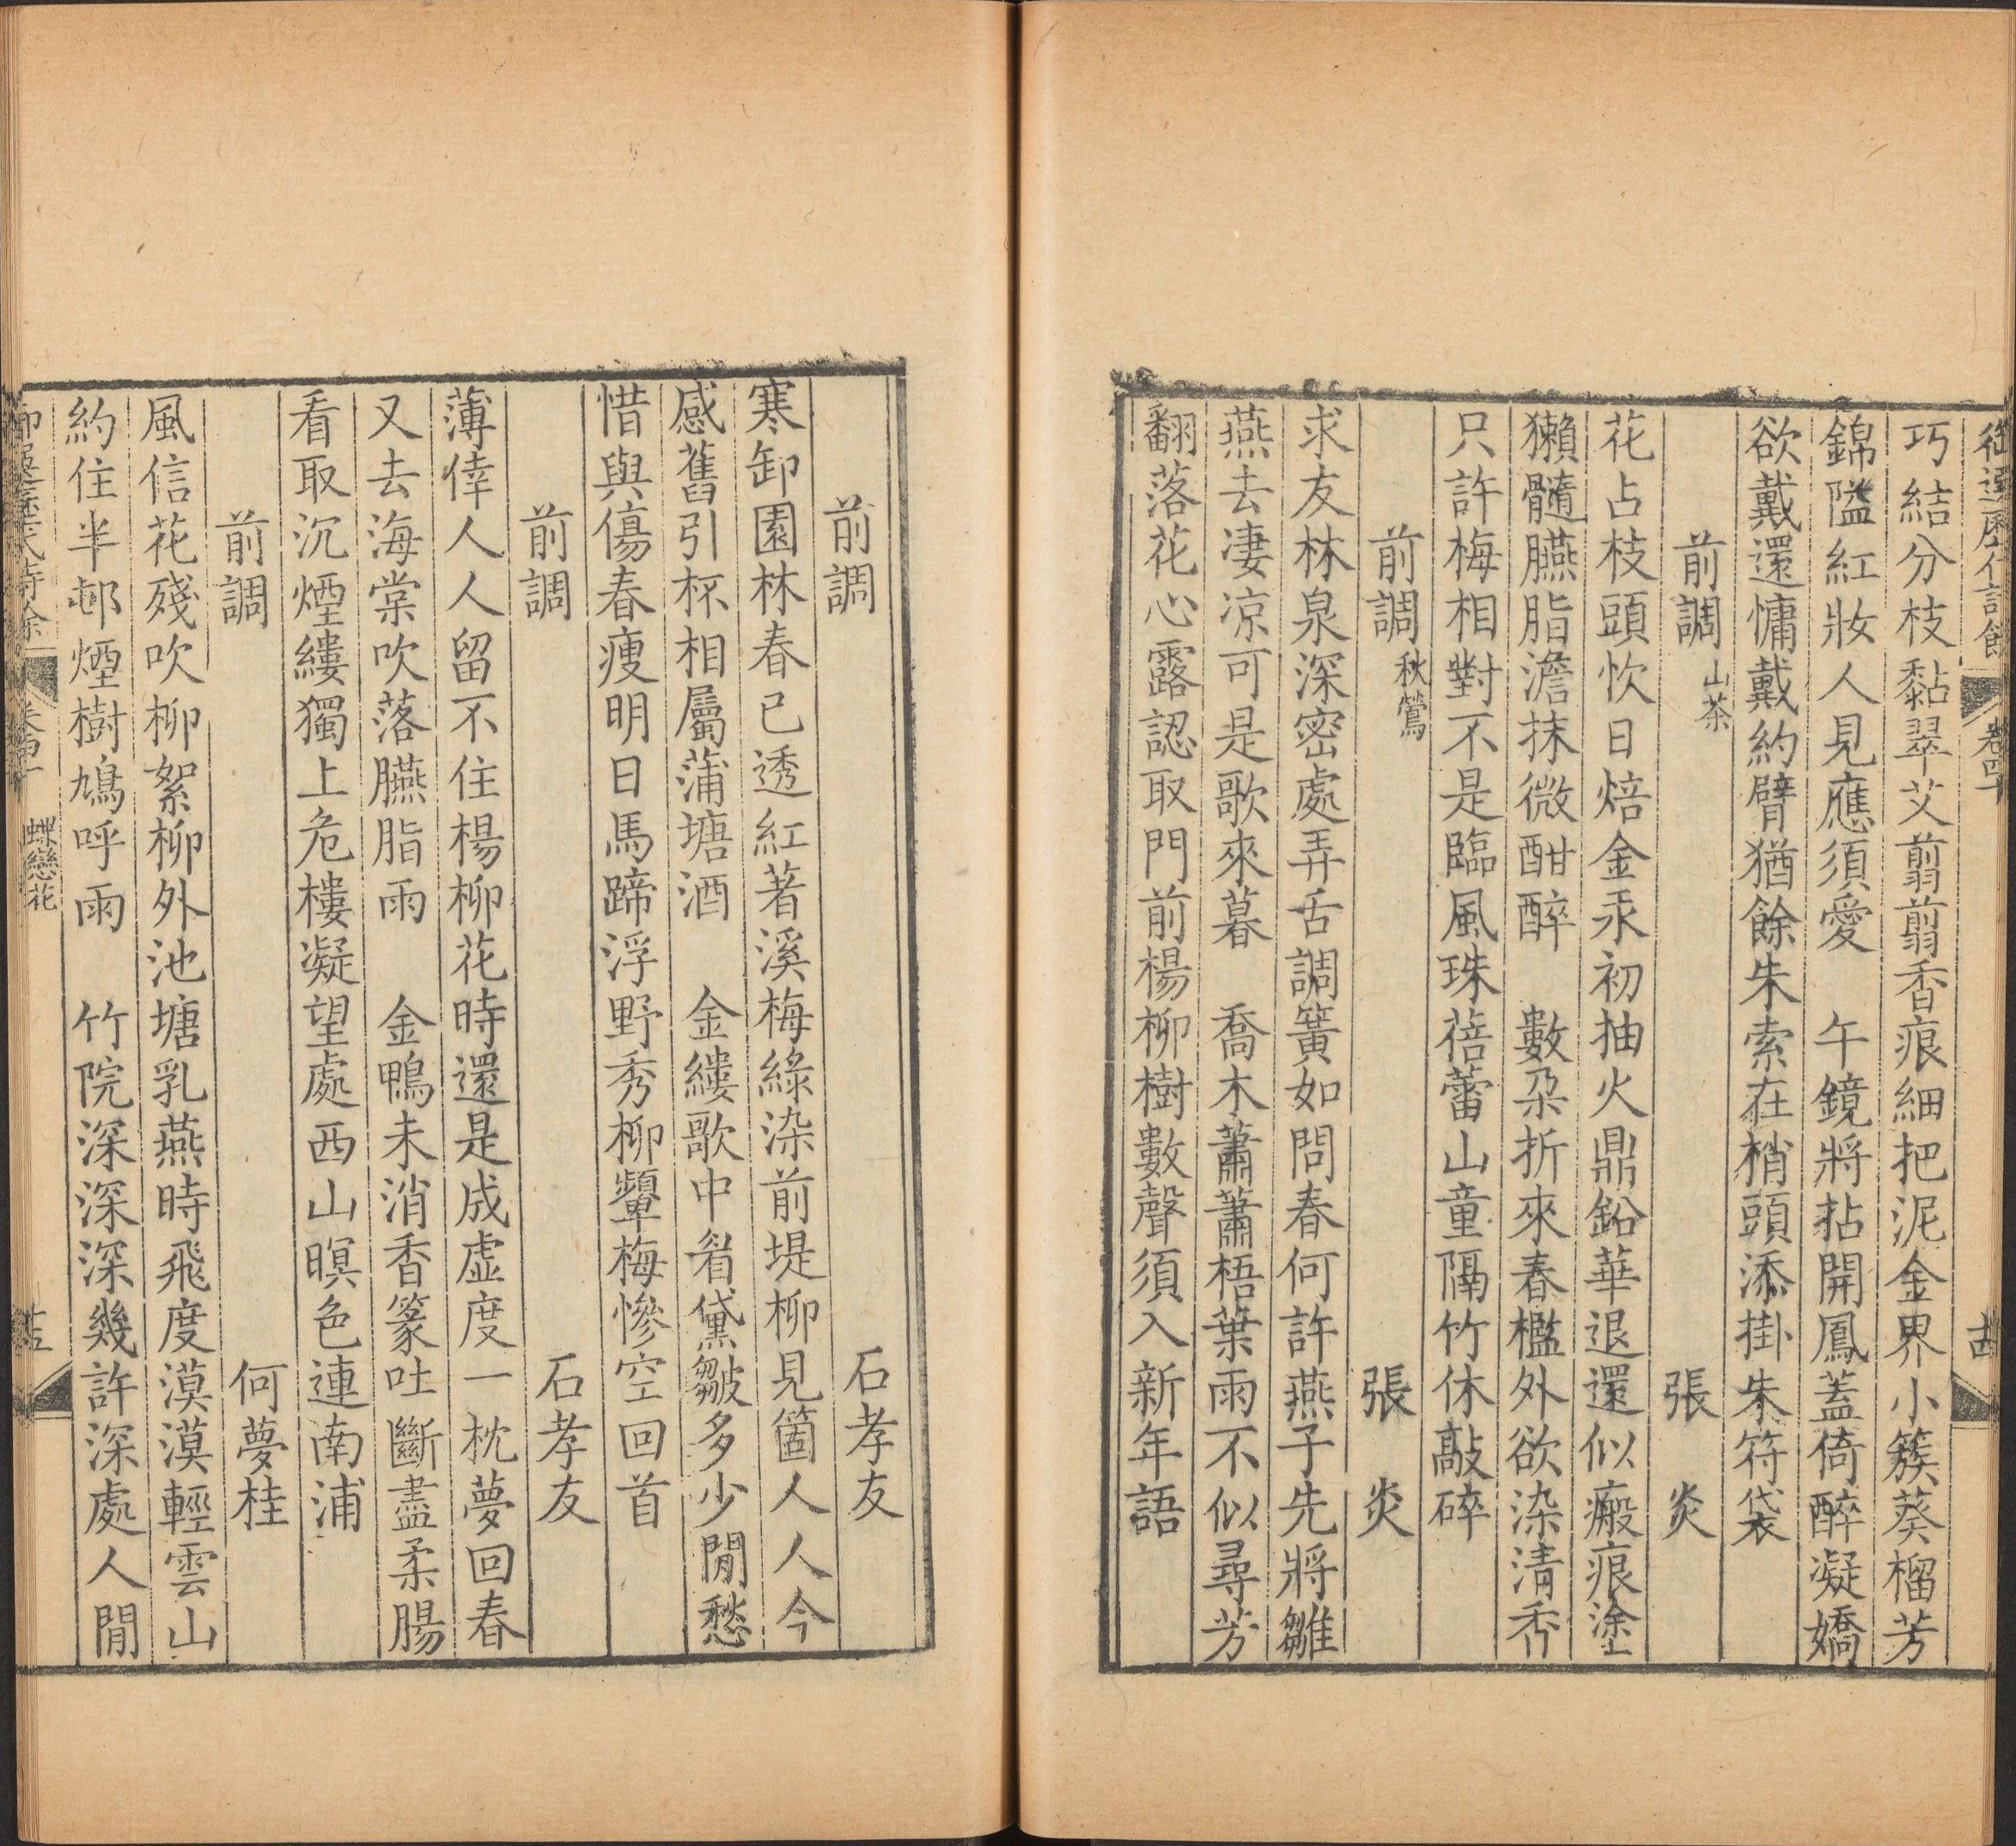 御選歷代詩餘 卷四十 古
巧結分枝黏翠艾翦翦香痕細把泥金界小簇葵榴芳
錦隘紅妝人見應須愛　午鏡將拈開鳳蓋倚醉凝嬌
欲戴還慵戴約臂猶餘朱索在梢頭添掛朱符袋
前調 山茶　張炎
花占枝頭忺日焙金汞初抽火鼎鉛華退還似瘢痕塗
獺髓臙脂澹抹微酣醉　數朶折來春檻外欲染清香
只許梅相對不是臨風珠蓓蕾山童隔竹休敲碎
前調 秋鶯　張炎
求友林泉深密處弄舌調簧如問春何許燕子先將雛
燕去凄凉可是歌來暮　喬木蕭蕭梧葉雨不似尋芳
翻落花心露認取門前楊柳樹數聲須入新年語
前調　石孝友
寒卸園林春已透紅著溪梅綠染前堤柳見箇人人今
感舊引杯相屬蒲塘酒　金縷歌中眉黛皺多少閒愁
惜與傷春瘦明日馬蹄浮野秀柳顰梅慘空回首
前調　石孝友
薄倖人人留不住楊柳花時還是成虛度一枕夢回春
又去海棠吹落臙脂雨　金鴨未消香篆吐斷盡柔腸
看取沉煙縷獨上危樓凝望處西山暝色連南浦
前調　何夢桂
風信花殘吹柳絮柳外池塘乳燕時飛度漠漠輕雲山
約住半邨煙樹鳩呼雨　竹院深深深幾許深處人閒
御選歷代詩餘 卷四十 蝶戀花